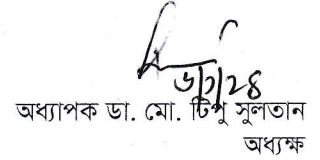 ৬/১/২৪
অধ্যাপক ডা. মো. টিপু সুলতান
অধ্যক্ষ